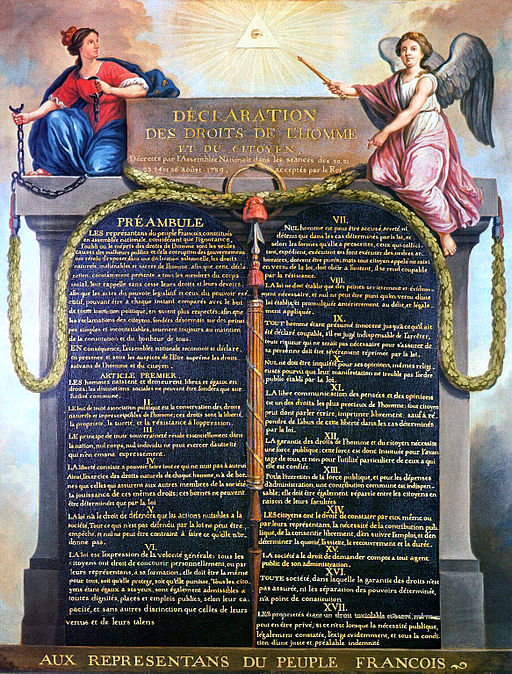 DÉCLARATION
DES DROITS DE L'HOMME
ET DU CITOYEN
Décretés par l'Assemblée Nationale dans les séances des 20, 21
23, 24 et 26 août 1789, Acceptés par le Roi
PRÉAMBULE
LES représentans du peuple François, constitués
en assemblée nationale, considérant que l'ignorance,
l'oubli ou le mépris des droits de l'homme sont les seules
causes des malheurs publics et de la corruption des gouvernemens
ont résolu d'exposer dans une déclaration solemnelle, les droits
naturels, inaliénables et sacrés de l'homme: afin que cette décla
ration, constamment présente a tous les membres du corps
social, leur rappelle sans cesse leurs droits et leurs devoirs;
afin que les actes du pouvoir législatif et ceux du pouvoir exé
cutif, pouvant être a chaque instant comparés avec le but
de toute institution politique, en soient plus respectés; afin que
les réclamations des citoyens, fondées désormais sur des princi
pes simples et incontestables, tournent toujours au maintien
de la constitution et du bonheur de tous.
EN conséquence, l'assemblée nationale reconnoit et déclare
en présence et sous les auspices de l'Etre suprême les droits
suivans de l'homme et du citoyen.
ARTICLE PREMIER.
LES hommes naissent et demeurent libres et égaux en
droits; les distinctions sociales ne peuvent être fondées que sur
l'utilité commune.
II.
LE but de toute association politique est la conservation des droits
naturels et imprescriptibles de l'homme; ces droits sont la liberté,
la propriété, la sureté, et la résistance à l'oppression.
III.
LE principe de toute souveraineté réside essentiellement dans
la nation, nul corps, nul individu ne peut exercer d'autorité
qui n'en émane expressement.
IV.
LA liberté consiste a pouvoir faire tout ce qui ne nuit pas à autrui
Ainsi, l'exercice des droits naturels de chaque homme, n'a de bor-
nes que celles qui assurent aux autres membres de la société
la jouissance de ces mêmes droits; ces bornes ne peuvent
être déterminées que par la loi
V.
LA loi n'a le droit de défendre que les actions nuisibles à la
société. Tout ce qui n'est pas défendu par la loi ne peut être
empêché, et nul ne peut être contraint à faire ce qu'elle n'or-
donne pas.
VI.
LA loi est l'expression de la volonté générale; tous les
citoyens ont droit de concourir personnellement, ou par
leurs représentans, à sa formation; elle doit être la même
pour tous, soit qu'elle protege, soit qu'elle punisse. Tous les cito
yens étant égaux a ses yeux, sont également admissibles a
toutes dignités, places et emplois publics, selon leur ca
pacité, et sans autres distinction que celles de leurs
vertus et de leurs talens
VII.
NUL homme ne peut être accusé, arreté ni
détenu que dans les cas déterminés par la loi, et
selon les formes qu'elle a prescrites, ceux qui sollici
tent, expédient, exécutent ou font exécuter des ordres ar-
bitraires, doivent être punis; mais tout citoyen appelé ou saisi
en vertu de la loi, doit obéir a l'instant, il se rend coupable
par la résistance.
VIII.
LA loi ne doit établir que des peines strictement et évidem-
ment nécessaire, et nul ne peut être puni qu'en vertu d'une
loi établie et promulguée antérieurement au délit, et légale-
ment appliquée.
IX.
TOUT homme étant présumé innocent jusqu'a ce qu'il ait
été déclaré coupable, s'il est jugé indispensable de l'arrêter,
toute rigueur qui ne serait pas nécessaire pour s'assurer de
sa personne doit être sévérement réprimée par la loi.
X.
NUL ne doit être inquiété pour ses opinions, mêmes religi-
euses pourvu que leur manifestation ne trouble pas l'ordre
public établi par la loi.
XI.
LA libre communication des pensées et des opinions
est un des droits les plus précieux de l'homme; tout citoyen
peut donc parler écrire, imprimer librement: sauf a ré-
pondre de l'abus de cette liberté dans les cas déterminés
par la loi.
XII.
LA garantie des droits de l'Homme et du citoyen nécessite
une force publique; cette force est donc instituée pour l'avan-
tage de tous, et non pour l'utilité particuliere de ceux a qui
elle est confiée.
XIII.
POUR l'entretien de la force publique, et pour les dépenses
d'administration, une contribution commune est indispen-
sable; elle doit être également répartie entre les citoyens en
raison de leurs facultées
XIV.
LES citoyens ont le droit de constater par eux même ou
par leurs représentans, la nécessité de la contribution pub-
lique, de la consentir librement, d'en suivre l'emploi, et d'en
déterminer la quotité, l'assiette, le recouvrement et la durée.
XV.
LA société a le droit de demander compte a tout agent
public de son administration.
XVI.
TOUTE société, dans laquelle la garantie des droits n'est
pas assurée, ni la séparation des pouvoirs déterminée,
n'a point de constitution
XVII.
LES propriétés étant un droit inviolable et sacré, nul ne
peut en être privé, si ce n'est lorsque la nécessité publique,
légalement constatée, l'exige evidemment, et sous la condi
tion d'une juste et préalable indemnité
AUX REPRESENTANS DU PEUPLE FRANCOIS